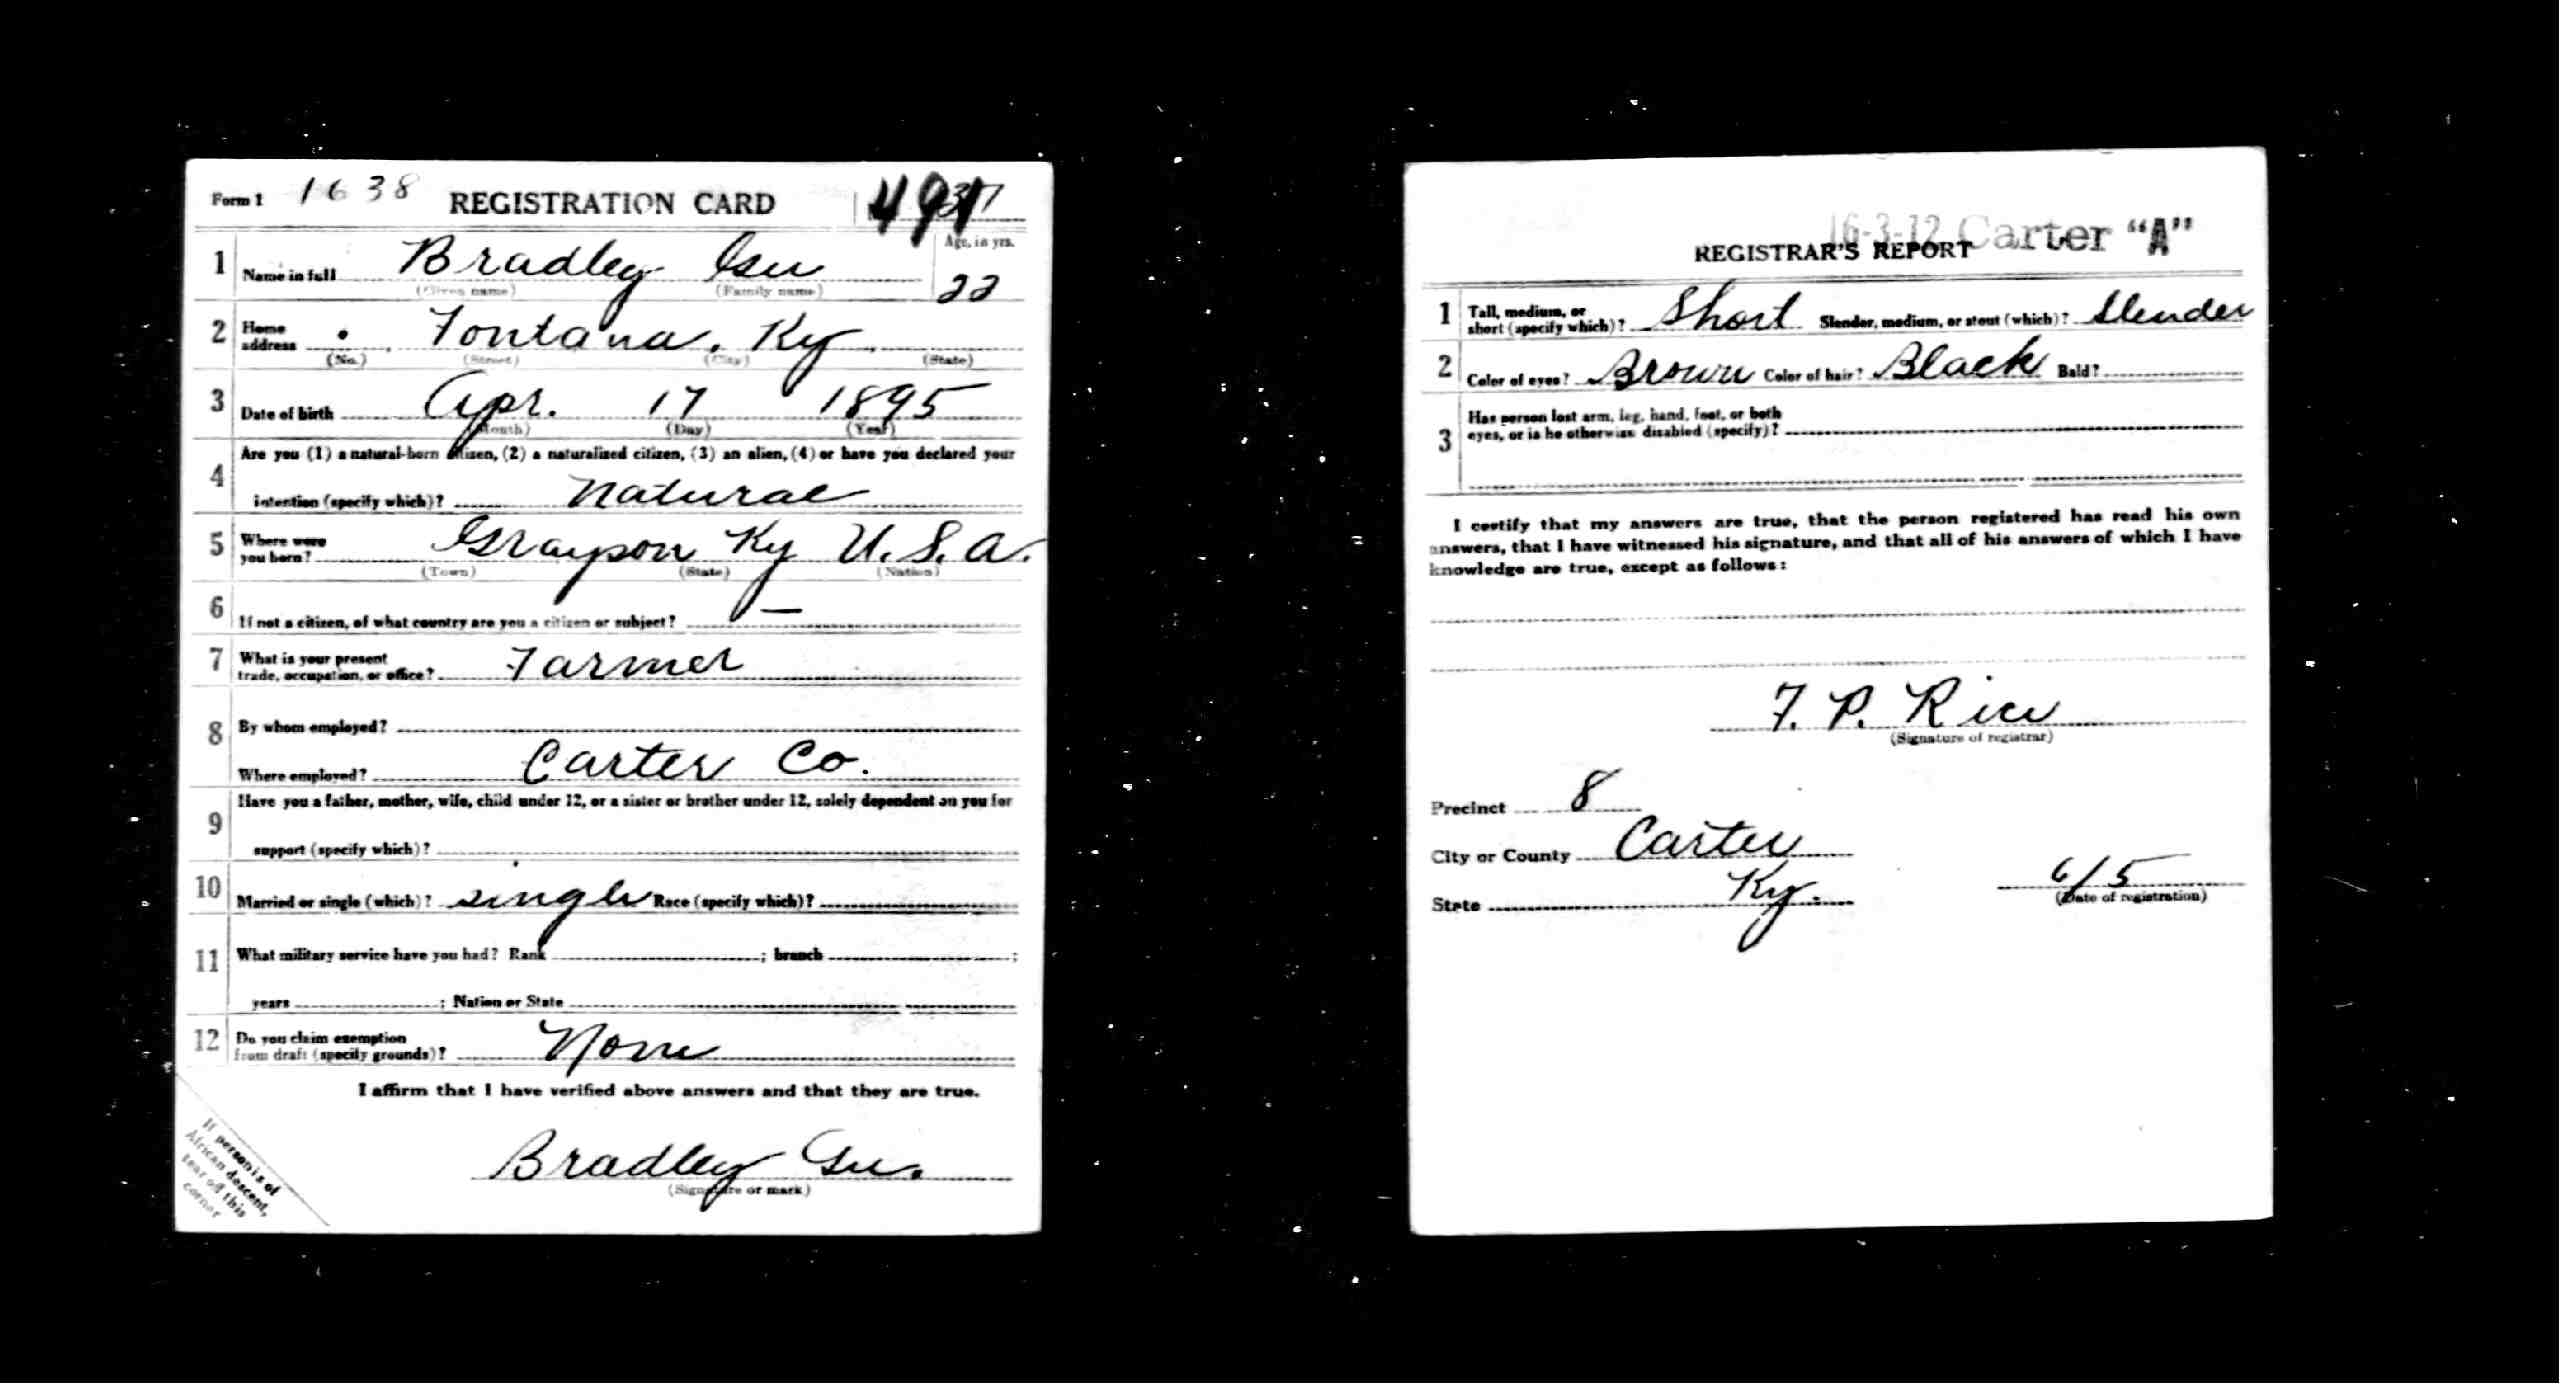 Form 1 1638 REGISTRATION CARD 491 37
1 Name in full Bradley Age, in yrs.
(Given name) (Family name) 22
2 Home address Fontana, Ky
(No.) (Street) (City) (State)
3 Date of birth Apr. 17 1895
(Month) (Day) (Year)
4 Are you (1) a natural-born citizen, (2) a naturalized citizen, (3) an alien, (4) or have you declared your
intention (specify which)? Natural
5 Where were you born? Grayson Ky U.S.A.
(Town) (State) (Nation)
6 If not a citizen, of what country are you a citizen or subject? —
7 What is your present trade, occupation, or office? Farmer
8 By whom employed?
Where employed? Carter Co.
9 Have you a father, mother, wife, child under 12, or a sister or brother under 12, solely dependent on you for
support (specify which)?
10 Married or single (which)? single Race (specify which)?
11 What military service have you had? Rank ; branch ;
years ; Nation or State
12 Do you claim exemption from draft (specify grounds)? None
I affirm that I have verified above answers and that they are true.
Bradley
(Signature or mark)
If person is of
African descent,
tear off this
corner
16-3-12 Carter "A"
REGISTRAR'S REPORT
1 Tall, medium, or short (specify which)? Short Slender, medium, or stout (which)? Slender
2 Color of eyes? Brown Color of hair? Black Bald?
3 Has person lost arm, leg, hand, foot, or both
eyes, or is he otherwise disabled (specify)?
I certify that my answers are true, that the person registered has read his own
answers, that I have witnessed his signature, and that all of his answers of which I have
knowledge are true, except as follows:
F. P. Rice
(Signature of registrar)
Precinct 8
City or County Carter
State Ky. 6/5
(Date of registration)